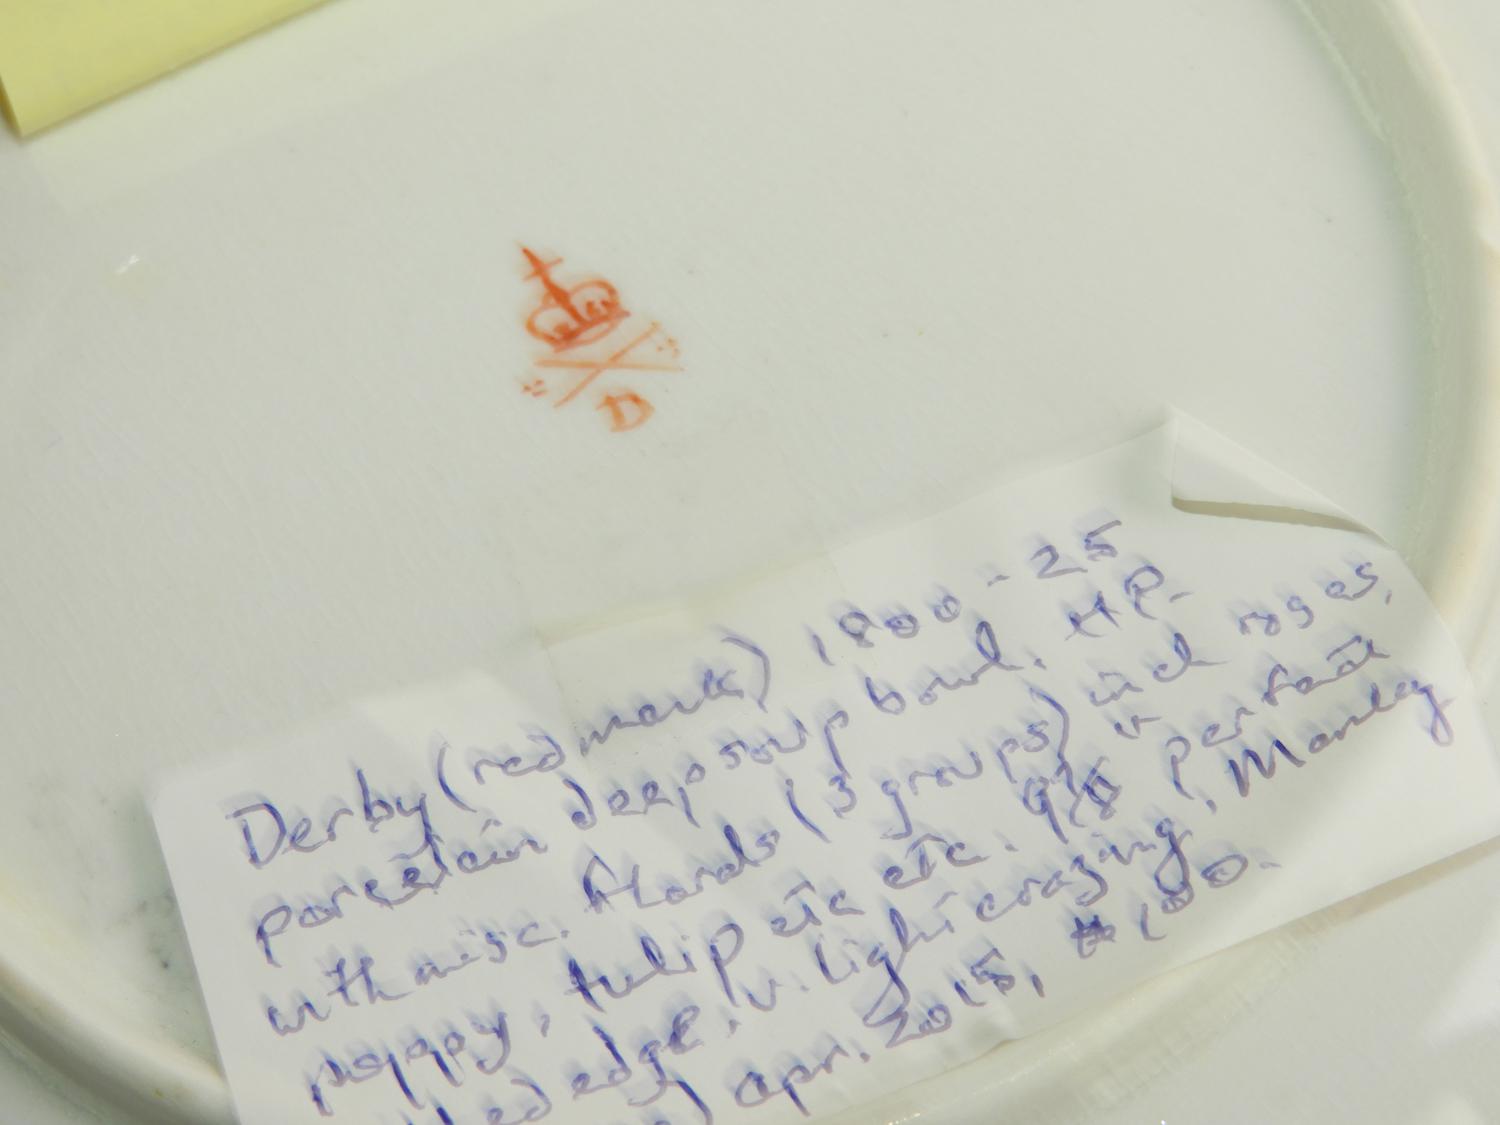 D
Derby (red mark) 1800-25
porcelain deep soup bowl. HP.
with misc. florals (3 groups) incl roses,
poppy, tulip etc etc. 9 5/8" perfect
edge. v. light crazing, Manley
apr. 2015, 100.